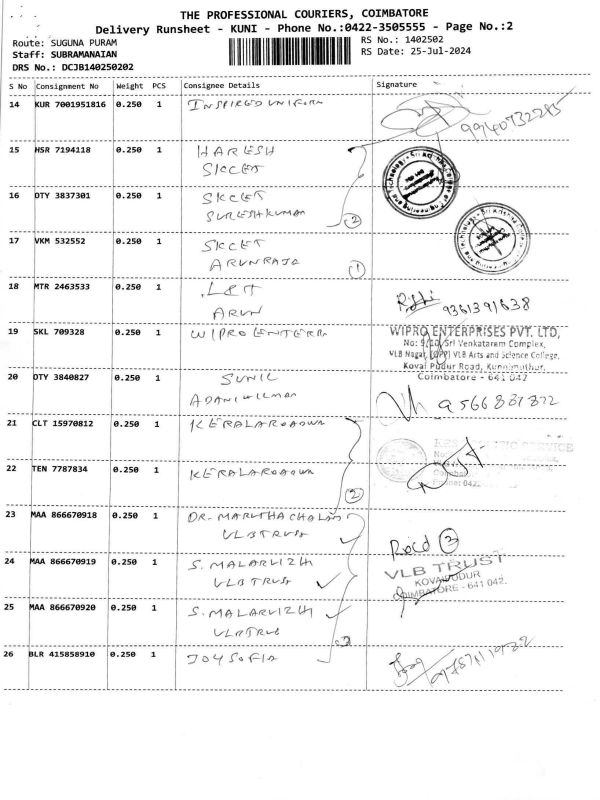 THE PROFESSIONAL COURIERS, COIMBATORE
Delivery Runsheet - KUNI - Phone No.:0422-3505555 - Page No.:2
Route: SUGUNA PURAM
RS No.: 1402502
Staff: SUBRAMANAIAN
RS Date: 25-Jul-2024
DRS No.: DCJB140250202
S No Consignment No Weight PCS Consignee Details Signature
14 KUR 7001951816 0.250 1 INSPIRED UNIFORM
15 HSR 7194118 0.250 1 HARESH
SKCET
16 DTY 3837301 0.250 1 SKCET
SURESHKUMAR
2
17 VKM 532552 0.250 1 SKCET
ARUNRAJA
1
18 MTR 2463533 0.250 1 L&T
ARUN
9361391638
19 SKL 709328 0.250 1 WIPRO ENTERR
WIPRO ENTERPRISES PVT. LTD,
No: 9/10, Sri Venkataram Complex,
VLB Nagar, (OPP) VLB Arts and Science College,
Kovai Pudur Road, Kuniamuthur,
Coimbatore - 641 042
20 DTY 3840827 0.250 1 SUNIL
ADANI WILMAR
21 CLT 15970812 0.250 1 KERALAROADWA
22 TEN 7787834 0.250 1 KERALAROADWA
2
23 MAA 866670918 0.250 1 DR. MARUTHACHALAM
VLBTRUST
Recd 3
24 MAA 866670919 0.250 1 S. MALARVIZHI
VLBTRUST
VLB TRUST
KOVAIPUDUR
COIMBATORE - 641 042.
25 MAA 866670920 0.250 1 S. MALARVIZHI
VLBTRUS
3
26 BLR 415858910 0.250 1 JOYSOFIA